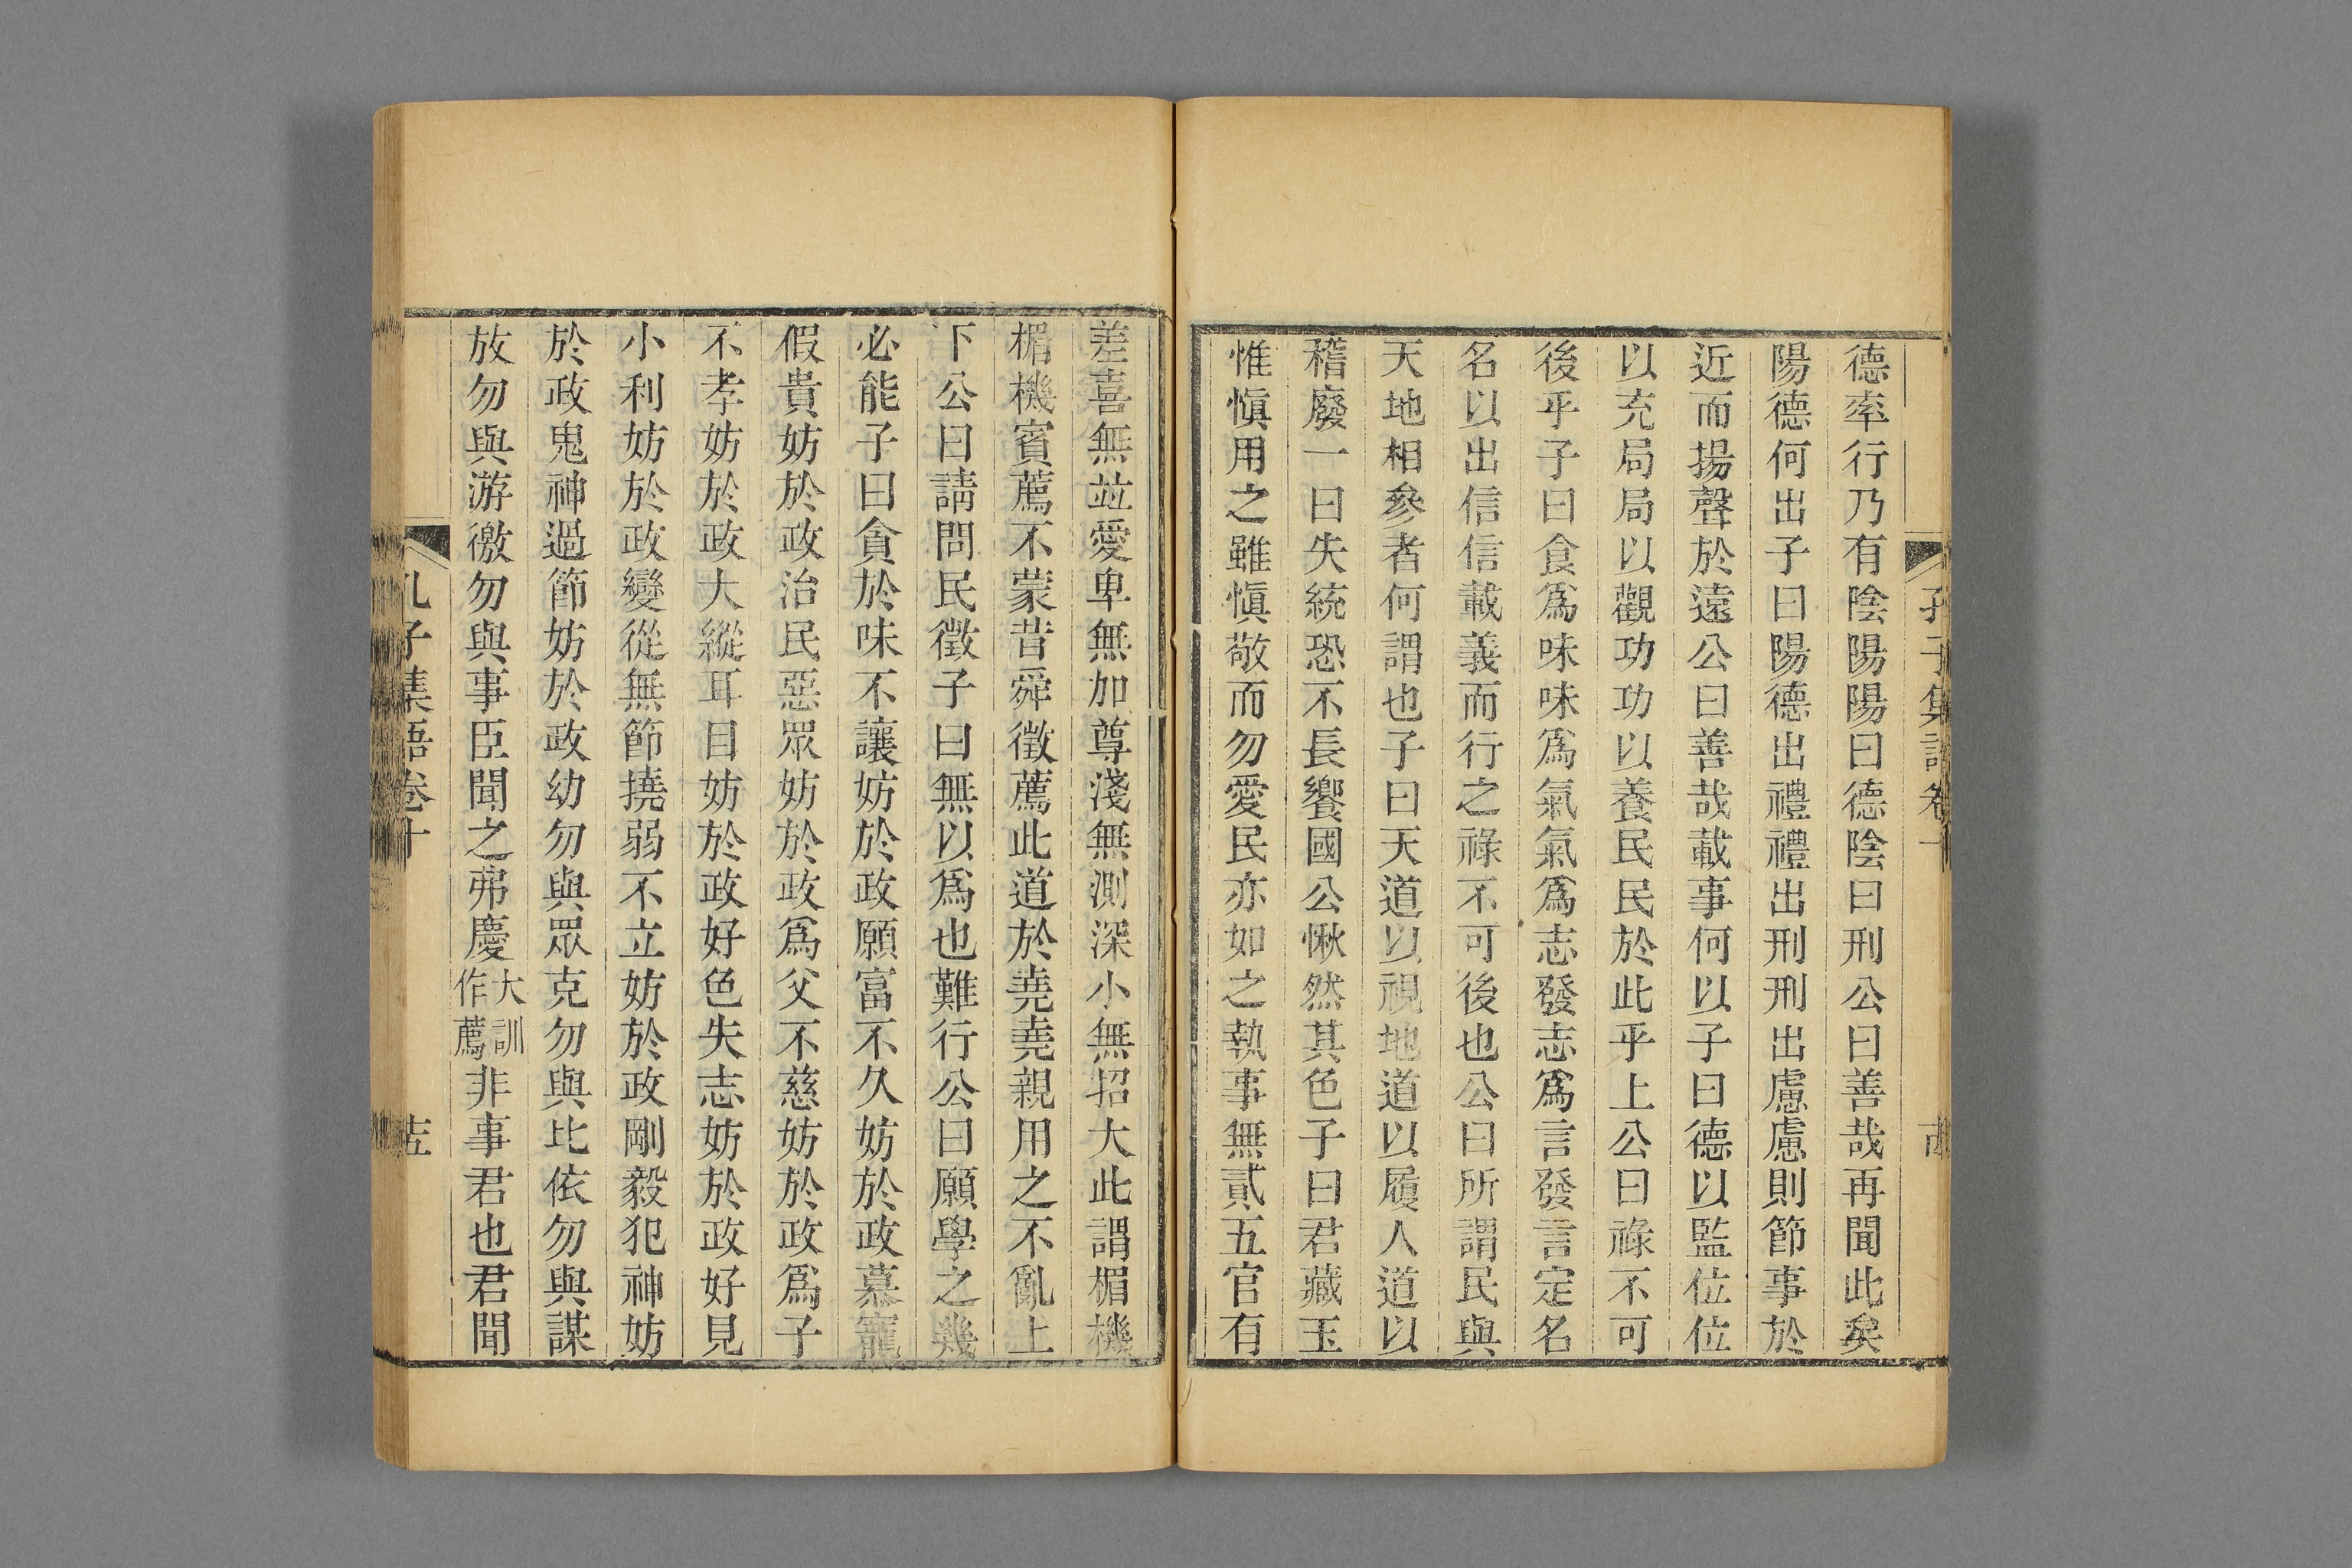 孔子集語卷十
德率行乃有陰陽陽曰德陰曰刑公曰善哉再聞此矣
陽德何出子曰陽德出禮禮出刑刑出慮慮則節事於
近而揚聲於遠公曰善哉載事何以子曰德以監位位
以充局局以觀功功以養民民於此乎上公曰祿不可
後乎子曰食爲味味爲氣氣爲志發志爲言發言定名
名以出信信載義而行之祿不可後也公曰所謂民與
天地相參者何謂也子曰天道以視地道以履人道以
稽廢一曰失統恐不長饗國公愀然其色子曰君藏玉
惟愼用之雖愼敬而勿愛民亦如之執事無貳五官有
差喜無竝愛卑無加尊淺無測深小無招大此謂楣機
楣機賓薦不蒙昔舜徵薦此道於堯堯親用之不亂上
下公曰請問民徵子曰無以爲也難行公曰願學之幾
必能子曰貪於味不讓妨於政願富不久妨於政慕寵
假貴妨於政治民惡眾妨於政爲父不慈妨於政爲子
不孝妨於政大縱耳目妨於政好色失志妨於政好見
小利妨於政變從無節撓弱不立妨於政剛毅犯神妨
於政鬼神過節妨於政幼勿與眾克勿與比依勿與謀
放勿與游徼勿與事臣聞之弗慶大訓作薦非事君也君聞
孔子集語卷十